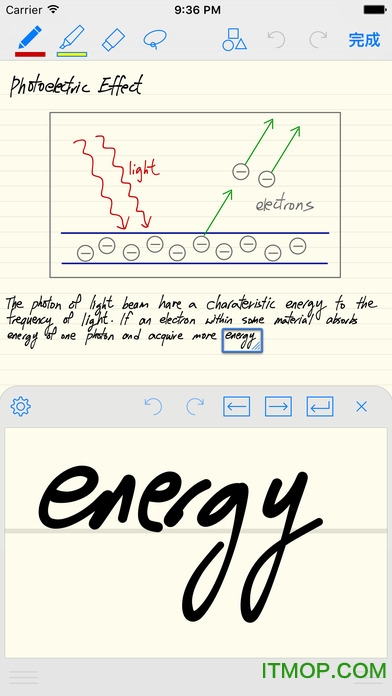 Carrier 9:36 PM
完成
Photoelectric Effect
light
electrons
The photon of light beam have a charateristic energy to the
frequency of light. If an electron within some material absorbs
energy of one photon and acquire more energy
energy
ITMOP.COM